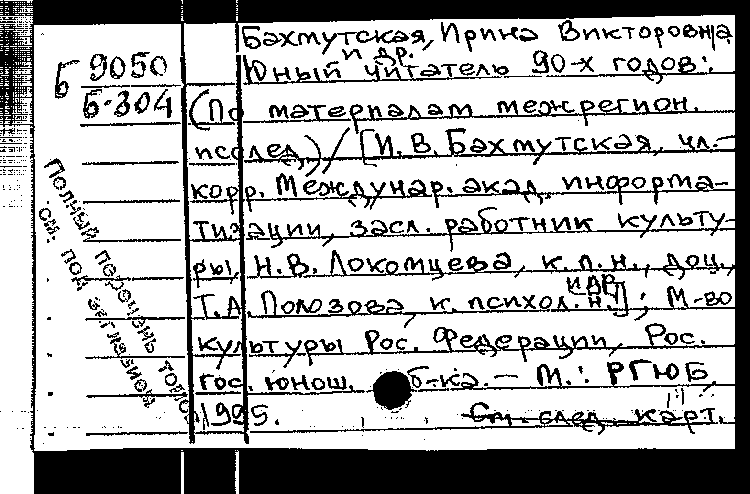 Бахмутская, Ирина Викторовна
и др.
Б 9050
Б-304
Юный читатель 90-х годов:
(По материалам межрегион.
исслед.) / [И. В. Бахмутская, чл.-
корр. Междунар. акад. информа-
тизации, засл. работник культу-
ры, Н. В. Локомцева, к. п. н., доц.,
Т. А. Полозова, к. психол. н. и др.]; М-во
культуры Рос. Федерации, Рос.
гос. юнош. б-ка. — М.: РГЮБ,
1995.
См. след. карт.
Полный перечень томов
см. под заглавием